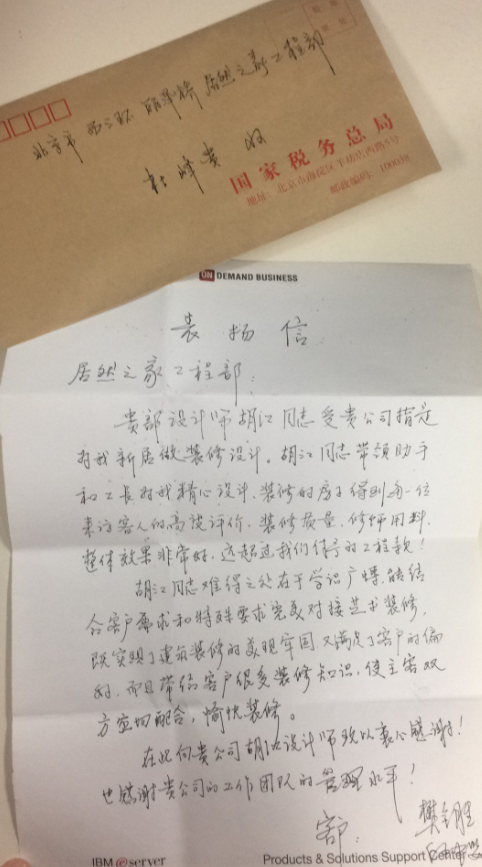 北京市 西三环 丽泽桥 居然之家工程部
收
国家税务总局
地址：北京市海淀区羊坊店西路5号
邮政编码：100038
ON DEMAND BUSINESS
表扬信
居然之家工程部：
贵部设计师胡江同志受贵公司指定
为我新居做装修设计。胡江同志带领助手
和工长为我精心设计、装修的房子得到每一位
来访客人的高度评价，装修质量、修饰用料、
整体效果非常好，远超过我们付给的工程款！
胡江同志难得之处在于学识广博，能结
合客户要求和特殊要求完美对接艺术装修，
既实现了建筑装修的美观牢固，又满足了客户的偏
好，而且带给客户很多装修知识，使主客双
方密切配合，愉快装修。
在此向贵公司胡江设计师致以衷心感谢！
也感谢贵公司的工作团队的管理水平！
客户：樊
IBM eserver
Products & Solutions Support Center